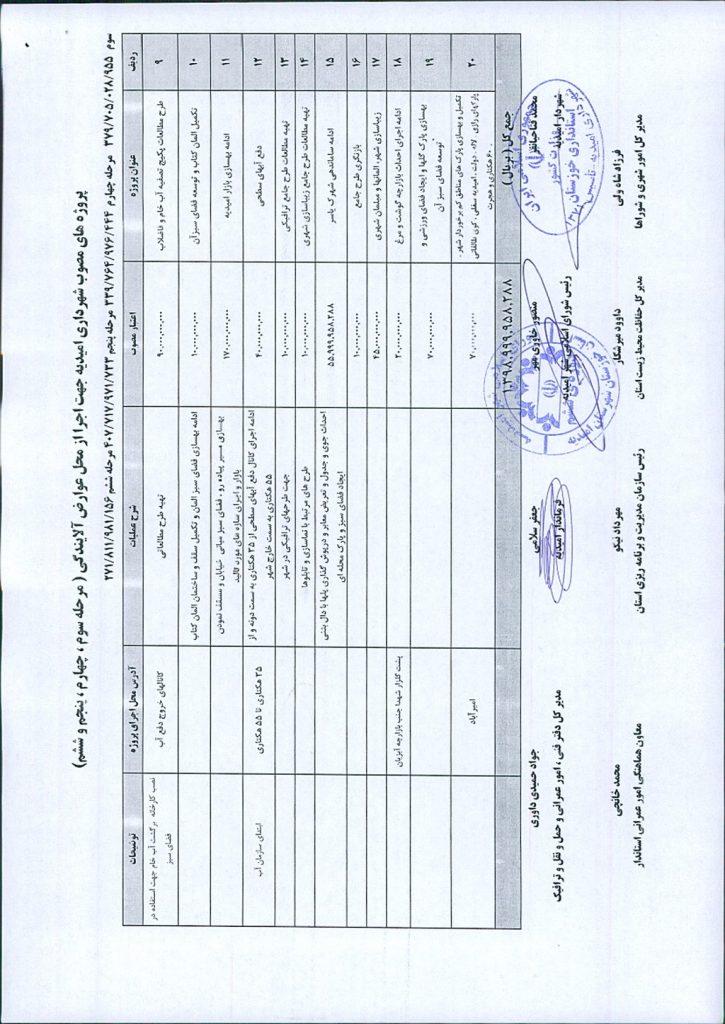 پروژه های مصوب شهرداری امیدیه جهت اجرا از محل عوارض آلایندگی ( مرحله سوم ، چهارم ، پنجم و ششم)
سوم ۳۷۹/۷۰۵/۰۲۸/۹۵۵ مرحله چهارم ۳۳۹/۷۶۴/۹۷۶/۴۴۴ مرحله پنجم ۴۰۷/۷۱۷/۹۷۱/۷۳۳ مرحله ششم ۲۷۱/۸۱۱/۹۸۱/۱۵۶
ردیف عنوان پروژه اعتبار مصوب شرح عملیات آدرس محل اجرای پروژه توضیحات
۹ طرح مطالعات پکیج تصفیه آب خام و فاضلاب ۹۰.۰۰۰.۰۰۰.۰۰۰ تهیه طرح مطالعاتی کانالهای خروج دفع آب نصب کارخانه برگشت آب خام جهت استفاده در
فضای سبز
۱۰ تکمیل المان کتاب و توسعه فضای سبز آن ۱۰.۰۰۰.۰۰۰.۰۰۰ ادامه بهسازی فضای سبز المان و تکمیل سقف و ساختمان المان کتاب
۱۱ ادامه بهسازی بازار امیدیه ۱۷۰.۰۰۰.۰۰۰.۰۰۰ بهسازی مسیر پیاده رو ، فضای سبز میانی خیابان و مسقف نمودن
بازار و اجرای سازه های مورد تائید
۱۲ دفع آبهای سطحی ۴۰.۰۰۰.۰۰۰.۰۰۰ ادامه اجرای کانال دفع آبهای سطحی از ۲۵ هکتاری به سمت دونه و از
۵۵ هکتاری به سمت خارج شهر ۲۵ هکتاری تا ۵۵ هکتاری ابتدای سازمان آب
۱۳ تهیه مطالعات طرح جامع ترافیکی ۱۰.۰۰۰.۰۰۰.۰۰۰ جهت طرحهای ترافیکی در شهر
۱۴ تهیه مطالعات طرح جامع زیباسازی شهری ۱۰.۰۰۰.۰۰۰.۰۰۰ طرح های مرتبط با نماسازی و تابلوها
۱۵ ادامه ساماندهی شهرک یاسر ۵۵.۹۹۹.۹۵۸.۲۸۸ احداث جوی و جدول و تعریض معابر و درپوش گذاری پلها با دال بتنی
ایجاد فضای سبز و پارک محله ای
۱۶ بازنگری طرح جامع ۱۰.۰۰۰.۰۰۰.۰۰۰
۱۷ زیباسازی شهر، المانها و مبلمان شهری ۶۵.۰۰۰.۰۰۰.۰۰۰
۱۸ ادامه اجرای احداث بازارچه گوشت و مرغ ۲۰.۰۰۰.۰۰۰.۰۰۰ پشت گلزار شهدا جنب بازارچه ایزیان
۱۹ بهسازی پارک گلها و ایجاد فضای ورزشی و
توسعه فضای سبز آن ۷۰.۰۰۰.۰۰۰.۰۰۰
۲۰ تکمیل و بهسازی پارک های مناطق کم برخوردار شهر
۶۰ هکتاری و هجرت ۷۰.۰۰۰.۰۰۰.۰۰۰ امیرآباد
جمع کل ( به ریال ) ۱.۳۹۸.۹۹۹.۹۵۸.۲۸۸
شهردار امیدیه
منصور خاوری مهر
رئیس شورای اسلامی شهر امیدیه
جعفر سلامی
فرماندار امیدیه
جواد حمیدی داوری
مدیر کل دفتر فنی ، امور عمرانی و حمل و نقل و ترافیک
فرزاد شاه ولی
مدیر کل امور شهری و شوراها
داوود میرشکار
مدیر کل حفاظت محیط زیست استان
مهرداد نیکو
رئیس سازمان مدیریت و برنامه ریزی استان
محمد خانچی
معاون هماهنگی امور عمرانی استاندار